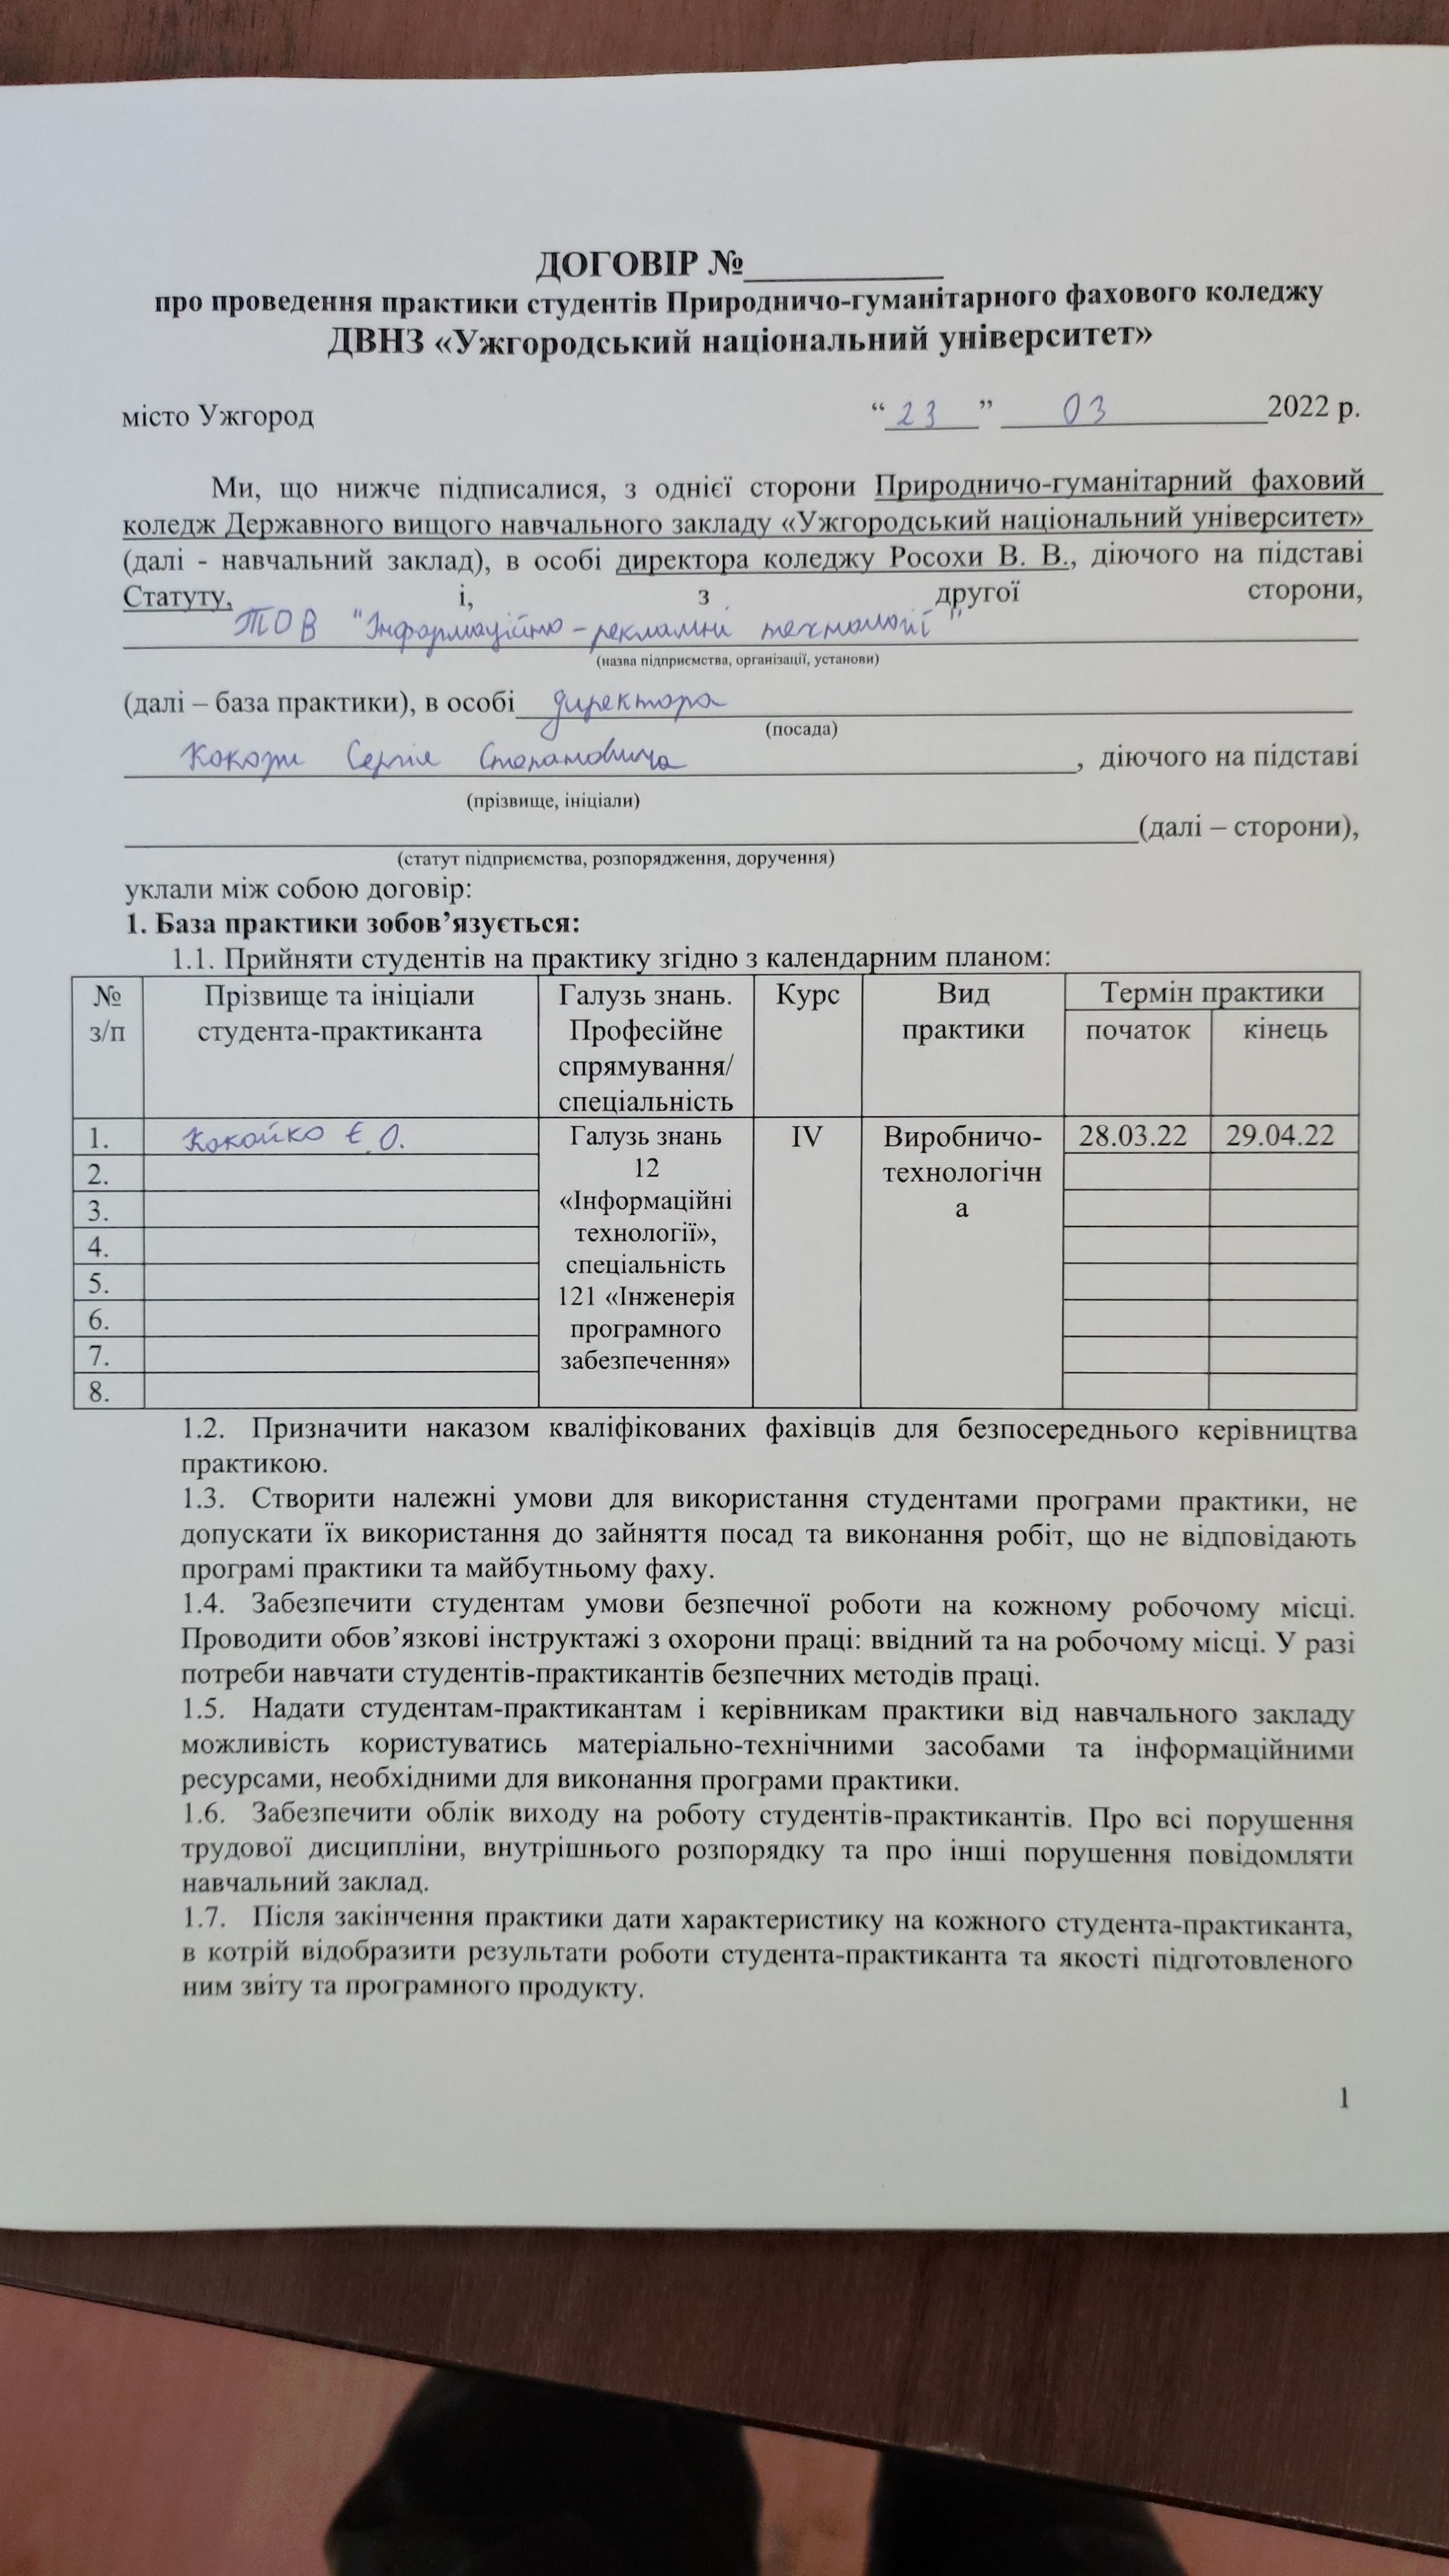 ДОГОВІР №
про проведення практики студентів Природничо-гуманітарного фахового коледжу
ДВНЗ «Ужгородський національний університет»
місто Ужгород “ 23 ” 03 2022 р.
Ми, що нижче підписалися, з однієї сторони Природничо-гуманітарний фаховий
коледж Державного вищого навчального закладу «Ужгородський національний університет»
(далі - навчальний заклад), в особі директора коледжу Росохи В. В., діючого на підставі
Статуту, і, з другої сторони,
ТОВ "Інформаційно-рекламні технології"
(назва підприємства, організації, установи)
(далі – база практики), в особі директора
(посада)
Сергія Степановича, діючого на підставі
(прізвище, ініціали)
(далі – сторони),
(статут підприємства, розпорядження, доручення)
уклали між собою договір:
1. База практики зобов’язується:
1.1. Прийняти студентів на практику згідно з календарним планом:
№ Прізвище та ініціали Галузь знань. Курс Вид Термін практики
з/п студента-практиканта Професійне практики початок кінець
спрямування/
спеціальність
1. Кокайко Є. О. Галузь знань IV Виробничо- 28.03.22 29.04.22
2. 12 технологічн
3. «Інформаційні а
4. технології»,
5. спеціальність
6. 121 «Інженерія
7. програмного
8. забезпечення»
1.2. Призначити наказом кваліфікованих фахівців для безпосереднього керівництва
практикою.
1.3. Створити належні умови для використання студентами програми практики, не
допускати їх використання до зайняття посад та виконання робіт, що не відповідають
програмі практики та майбутньому фаху.
1.4. Забезпечити студентам умови безпечної роботи на кожному робочому місці.
Проводити обов’язкові інструктажі з охорони праці: ввідний та на робочому місці. У разі
потреби навчати студентів-практикантів безпечних методів праці.
1.5. Надати студентам-практикантам і керівникам практики від навчального закладу
можливість користуватись матеріально-технічними засобами та інформаційними
ресурсами, необхідними для виконання програми практики.
1.6. Забезпечити облік виходу на роботу студентів-практикантів. Про всі порушення
трудової дисципліни, внутрішнього розпорядку та про інші порушення повідомляти
навчальний заклад.
1.7. Після закінчення практики дати характеристику на кожного студента-практиканта,
в котрій відобразити результати роботи студента-практиканта та якості підготовленого
ним звіту та програмного продукту.
1